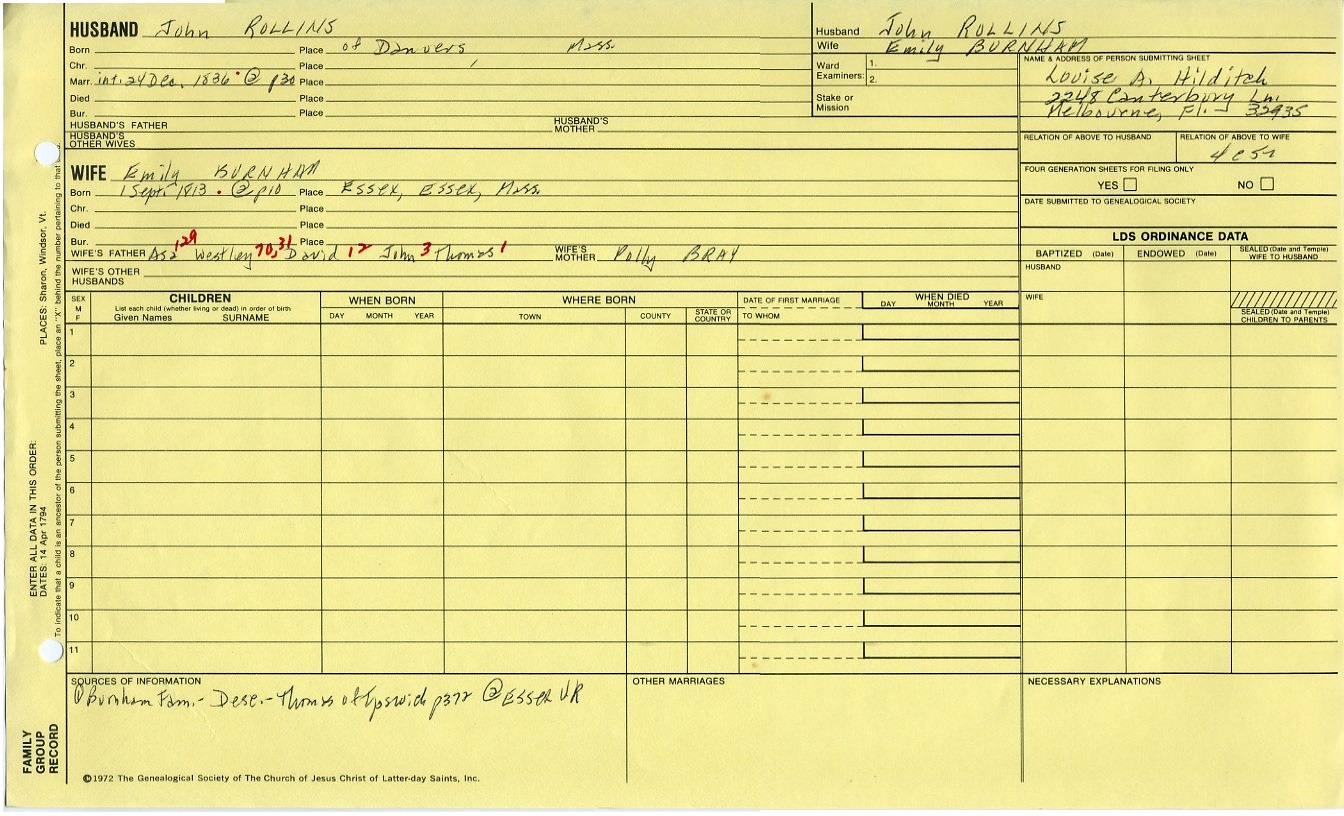 HUSBAND John ROLLINS
Born Place of Danvers Mass.
Chr. Place
Marr. int. 24 Dec. 1836 · ② p30 Place
Died Place
Bur. Place
HUSBAND'S FATHER HUSBAND'S MOTHER
HUSBAND'S OTHER WIVES
Husband John ROLLINS
Wife Emily BURNHAM
Ward Examiners: 1.
2.
Stake or Mission
NAME & ADDRESS OF PERSON SUBMITTING SHEET
Louise A. Hilditch
2248 Canterbury Ln.
Melbourne, Fl. 32935
RELATION OF ABOVE TO HUSBAND RELATION OF ABOVE TO WIFE
FOUR GENERATION SHEETS FOR FILING ONLY
YES NO
DATE SUBMITTED TO GENEALOGICAL SOCIETY
WIFE Emily BURNHAM
Born 1 Sept. 1813 · ② p10 Place Essex, Essex, Mass.
Chr. Place
Died Place
Bur. Place
WIFE'S FATHER Asa 129 Westley 70,31 David 12 John 3 Thomas 1 WIFE'S MOTHER Polly BRAY
WIFE'S OTHER HUSBANDS
LDS ORDINANCE DATA
BAPTIZED (Date) ENDOWED (Date) SEALED (Date and Temple) WIFE TO HUSBAND
HUSBAND
WIFE
SEALED (Date and Temple) CHILDREN TO PARENTS
SEX M F
CHILDREN
List each child (whether living or dead) in order of birth
Given Names SURNAME
WHEN BORN
DAY MONTH YEAR
WHERE BORN
TOWN COUNTY STATE OR COUNTRY
DATE OF FIRST MARRIAGE
TO WHOM
WHEN DIED
DAY MONTH YEAR
1
2
3
4
5
6
7
8
9
10
11
SOURCES OF INFORMATION
① Burnham Fam. - Desc. - Thomas of Ipswich p372 ② Essex VR
OTHER MARRIAGES
NECESSARY EXPLANATIONS
©1972 The Genealogical Society of The Church of Jesus Christ of Latter-day Saints, Inc.
FAMILY GROUP RECORD
ENTER ALL DATA IN THIS ORDER:
DATES: 14 Apr 1794
PLACES: Sharon, Windsor, Vt.
To indicate that a child is an ancestor of the person submitting the sheet, place an "X" behind the number pertaining to that